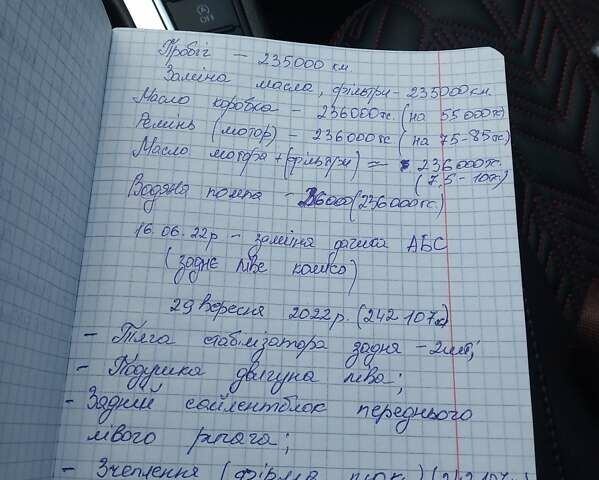 OFF
Пробіг - 235000 км
Заміна масла, фільтри - 235000 км
Масло коробка - 236000тс. (на 55000тс)
Ремінь (мотор) - 236000тс (на 75-85тс)
Масло мотора + (фільтри) - 236000тс.
(7,5 - 10тс)
Водяна помпа - (236000тс)
16.06.22р - заміна датчика АБС
(заднє ліве колесо)
29 вересня 2022р. (242 107к)
- Тяга стабілізатора задня - 2шт;
- Подушка двигуна ліва;
- Задній сайлентблок переднього
лівого рычага;
- Зчеплення (